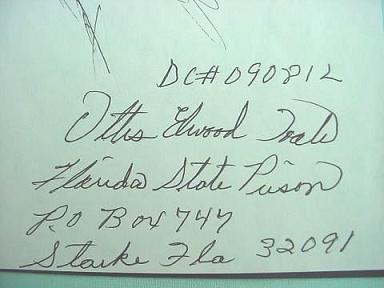 DC# 090812
Ottis Elwood Toole
Florida State Prison
P.O Box 747
Starke Fla 32091